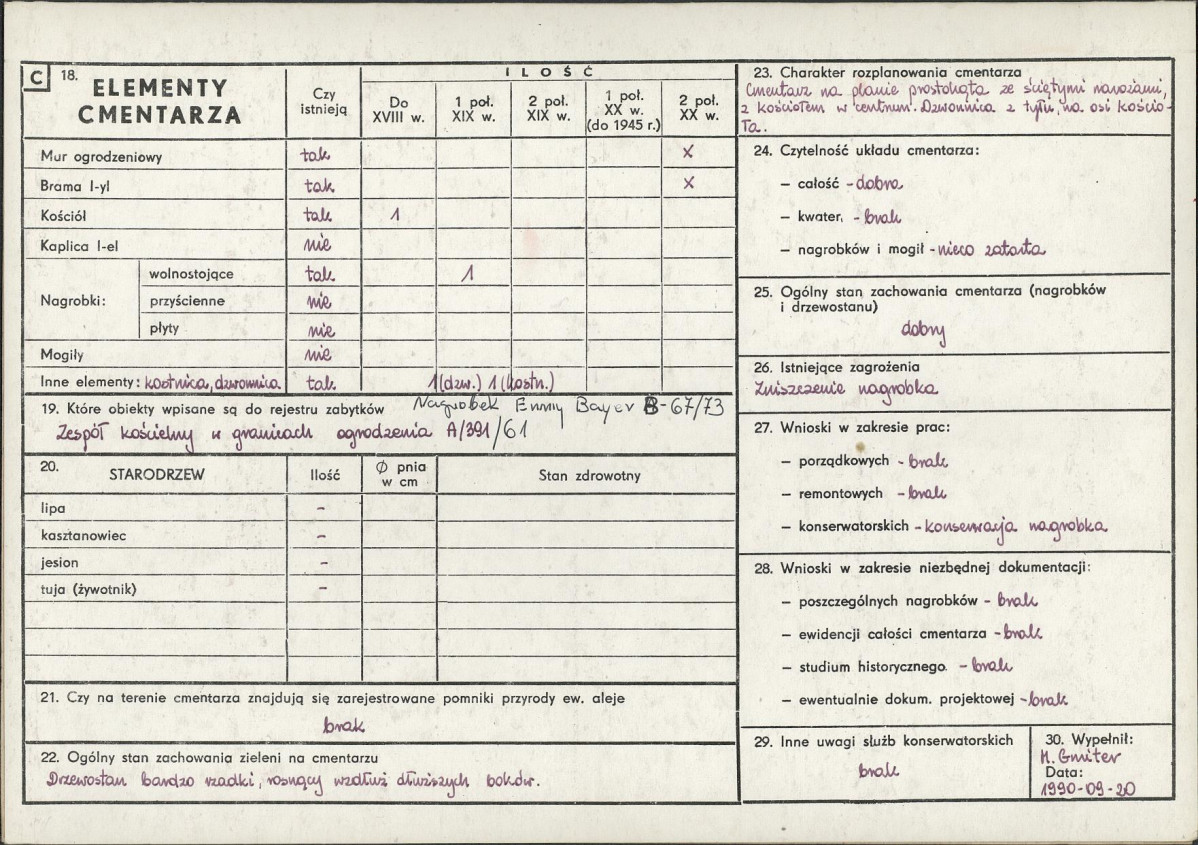 C 18. ELEMENTY CMENTARZA
Czy istnieją
ILOŚĆ
Do XVIII w.
1 poł. XIX w.
2 poł. XIX w.
1 poł. XX w. (do 1945 r.)
2 poł. XX w.
Mur ogrodzeniowy tak x
Brama I-yl tak x
Kościół tak 1
Kaplica I-el nie
Nagrobki:
wolnostojące tak 1
przyścienne nie
płyty nie
Mogiły nie
Inne elementy: kostnica, dzwonnica tak 1 (dzw.) 1 (kostn.)
19. Które obiekty wpisane są do rejestru zabytków Nagrobek Emmy Bayer B-67/73
Zespół kościelny w granicach ogrodzenia A/391/61
20. STARODRZEW Ilość Ø pnia w cm Stan zdrowotny
lipa -
kasztanowiec -
jesion -
tuja (żywotnik) -
21. Czy na terenie cmentarza znajdują się zarejestrowane pomniki przyrody ew. aleje
brak
22. Ogólny stan zachowania zieleni na cmentarzu
Drzewostan bardzo rzadki, rosnący wzdłuż dłuższych boków.
23. Charakter rozplanowania cmentarza
Cmentarz na planie prostokąta ze ściętymi narożami,
z kościołem w centrum. Dzwonnica z tyłu, na osi kościo-
ła.
24. Czytelność układu cmentarza:
– całość - dobra
– kwater, - brak
– nagrobków i mogił - nieco zatarta
25. Ogólny stan zachowania cmentarza (nagrobków
i drzewostanu)
dobry
26. Istniejące zagrożenia
Zniszczenie nagrobka
27. Wnioski w zakresie prac:
– porządkowych - brak
– remontowych - brak
– konserwatorskich - konserwacja nagrobka
28. Wnioski w zakresie niezbędnej dokumentacji:
– poszczególnych nagrobków - brak
– ewidencji całości cmentarza - brak
– studium historycznego - brak
– ewentualnie dokum. projektowej - brak
29. Inne uwagi służb konserwatorskich
brak
30. Wypełnił:
M. Gmiter
Data:
1990-09-20